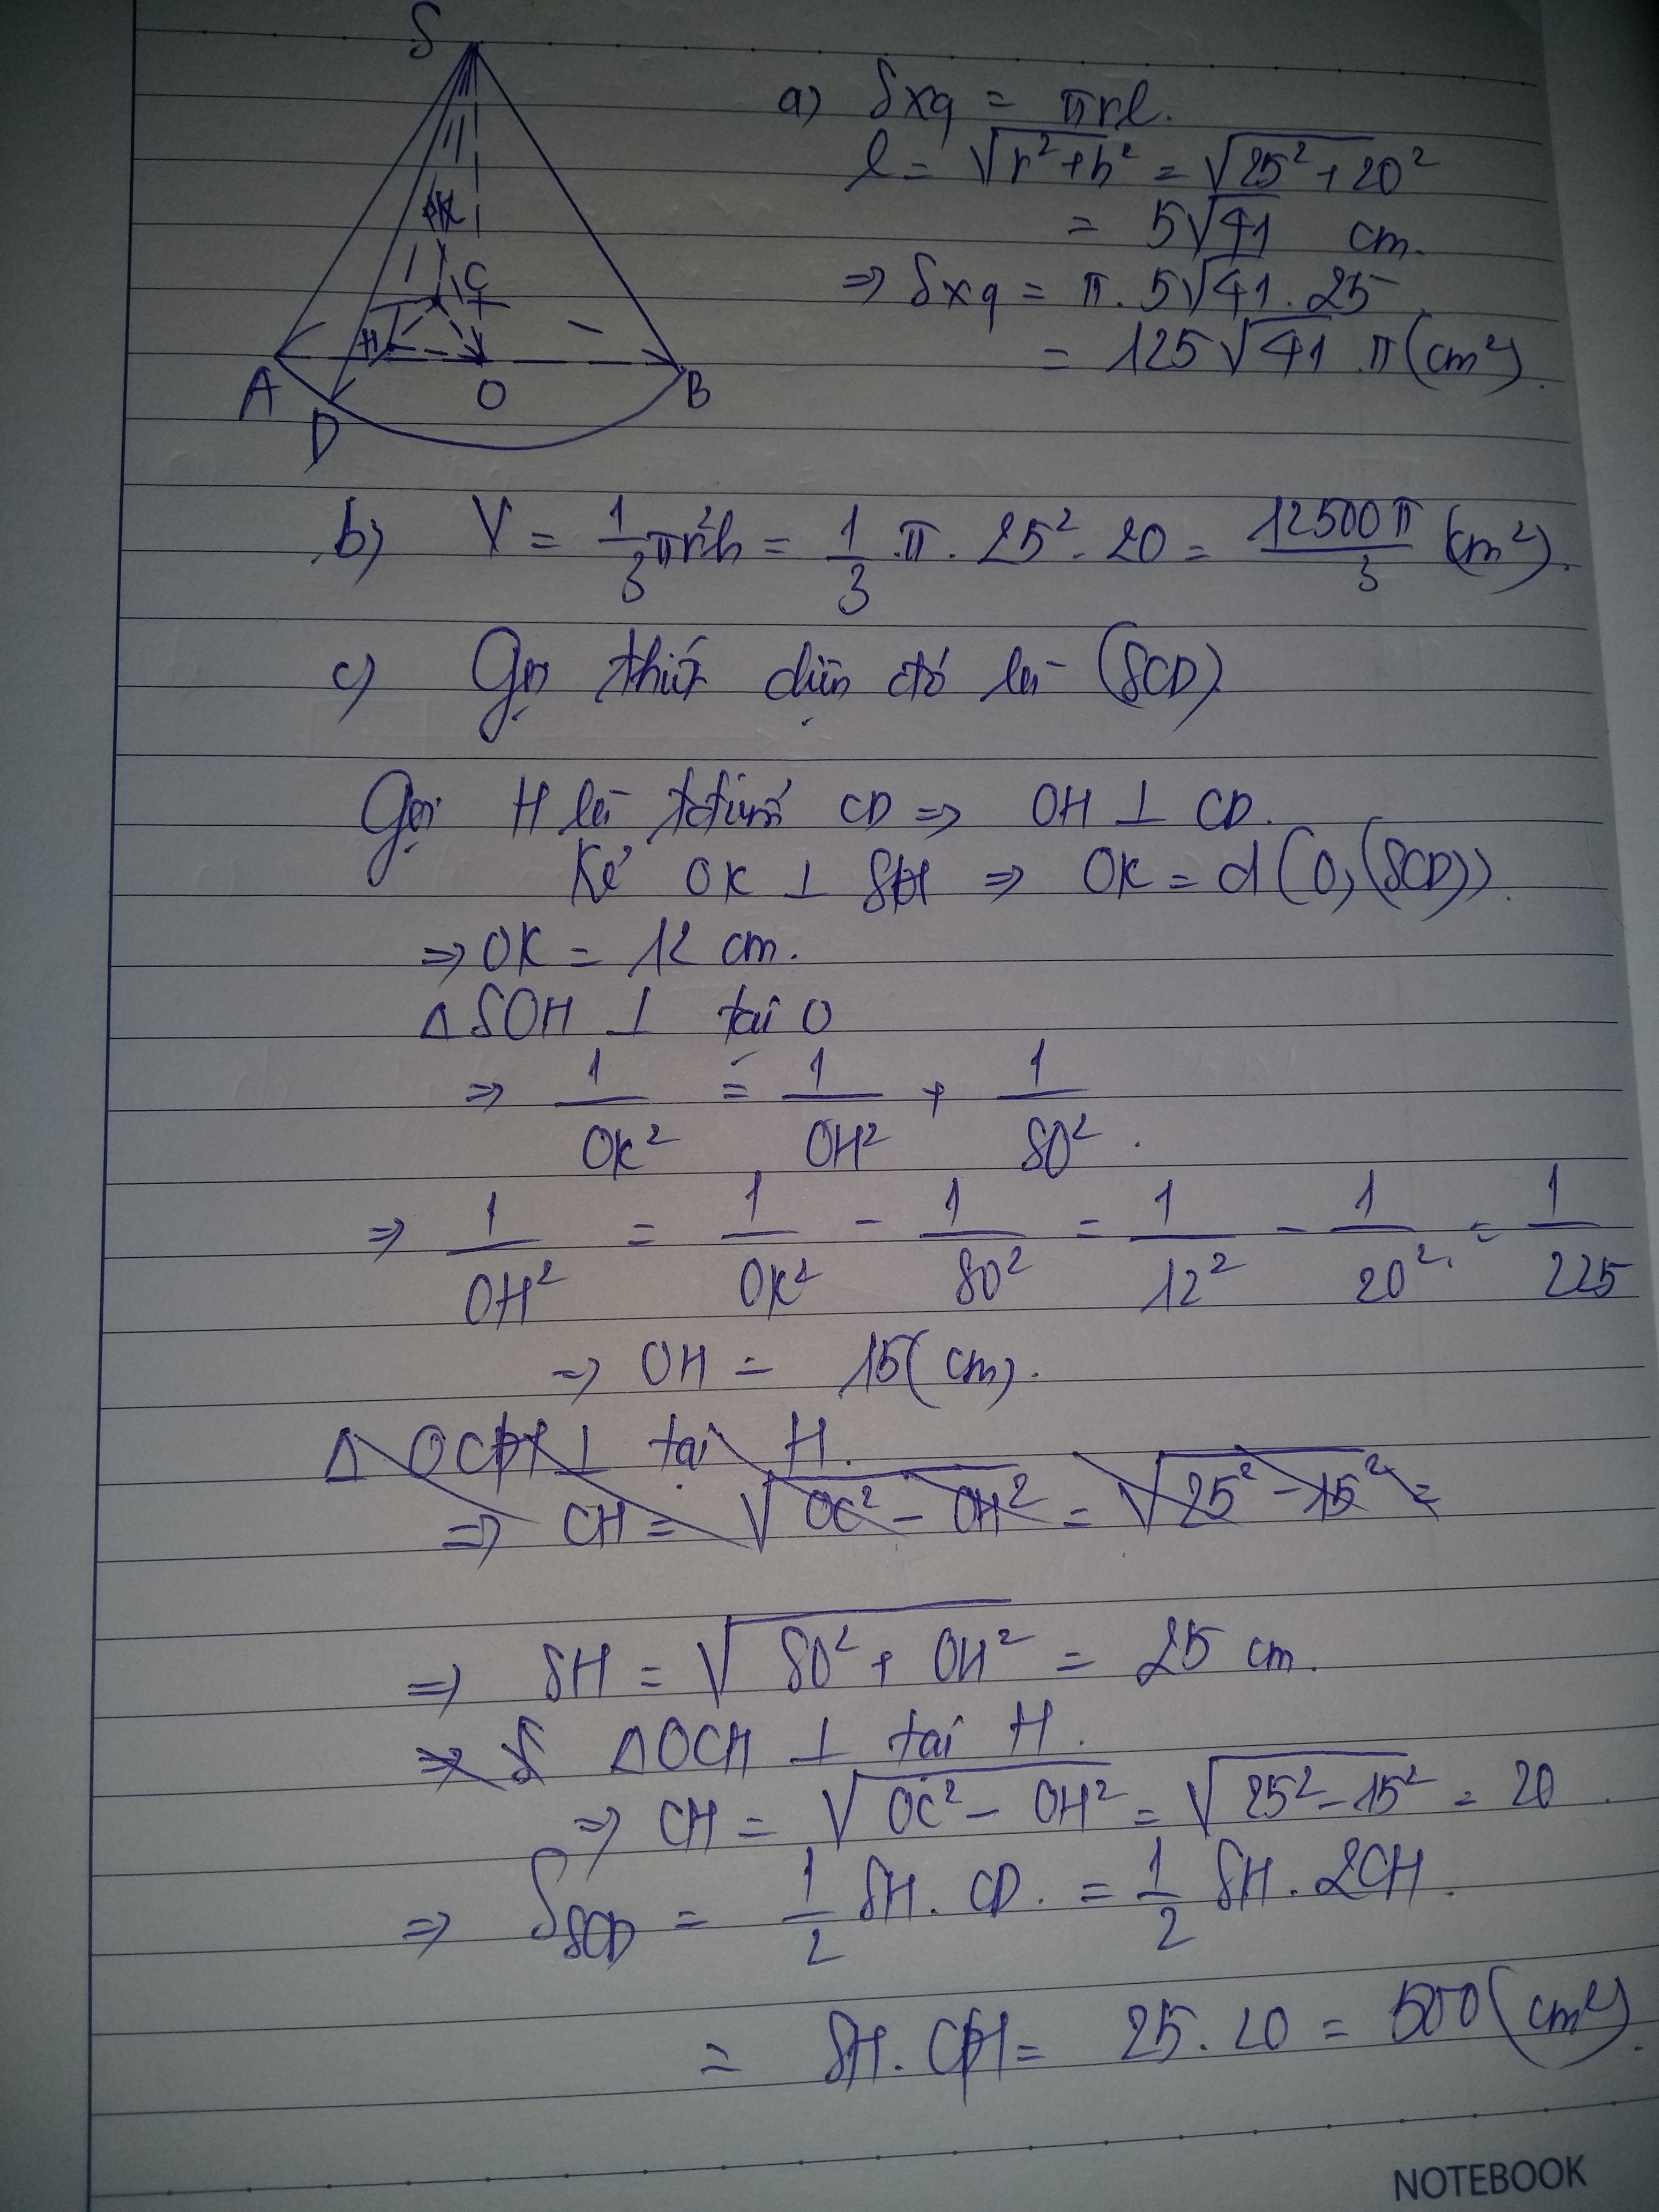 S
A
D
H
C
O
B
a) Sxq = πrl.
l = √(r² + h²) = √(25² + 20²)
= 5√41 cm.
⇒ Sxq = π. 5√41 . 25
= 125√41 .π (cm²).
b) V = 1/3 πr²h = 1/3 .π. 25². 20 = 12500π/3 (cm²).
c) Gọi thiết diện đó là (SCD)
Gọi H là tđiểm CD ⇒ OH ⊥ CD.
Kẻ OK ⊥ SH ⇒ OK = d(O, (SCD)).
⇒ OK = 12 cm.
Δ SOH ⊥ tại O
⇒ 1/OK² = 1/OH² + 1/SO².
⇒ 1/OH² = 1/OK² - 1/SO² = 1/12² - 1/20² = 1/225
⇒ OH = 15 (cm).
Δ OCH ⊥ tại H.
⇒ CH = √(OC² - OH²) = √(25² - 15²) =
⇒ SH = √(SO² + OH²) = 25 cm.
⇒ S ΔOCH ⊥ tại H.
⇒ CH = √(OC² - OH²) = √(25² - 15²) = 20.
⇒ S SCD = 1/2 SH. CD. = 1/2 SH. 2CH.
= SH. CH = 25. 20 = 500 (cm²).
NOTEBOOK